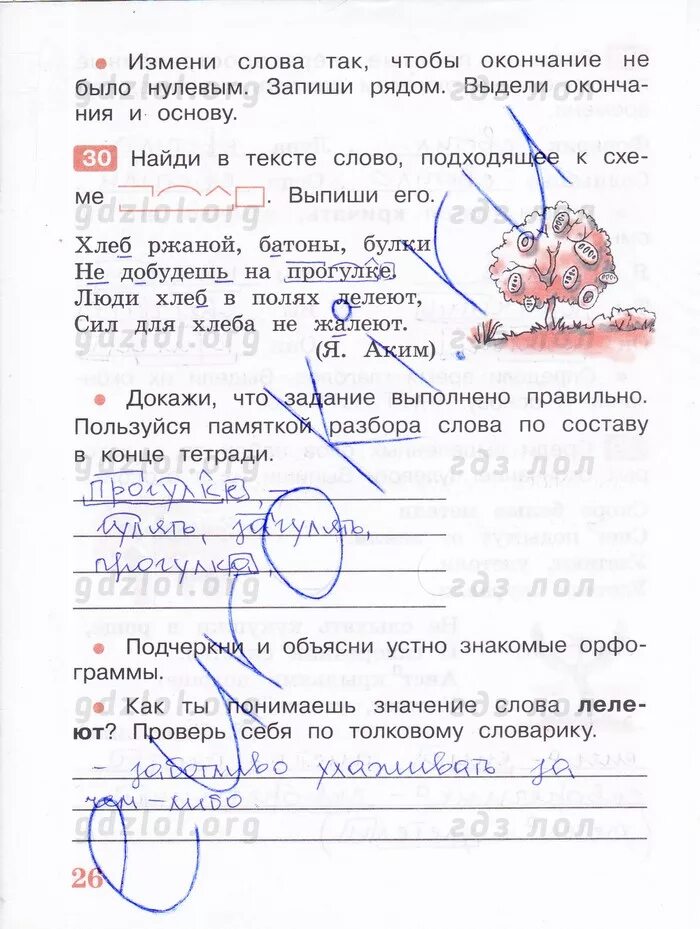 • Измени слова так, чтобы окончание не
было нулевым. Запиши рядом. Выдели оконча-
ния и основу.
30 Найди в тексте слово, подходящее к схе-
ме . Выпиши его.
Хлеб ржаной, батоны, булки
Не добудешь на прогулке.
Люди хлеб в полях лелеют,
Сил для хлеба не жалеют.
(Я. Аким)
• Докажи, что задание выполнено правильно.
Пользуйся памяткой разбора слова по составу
в конце тетради.
прогулке, –
гулять, загулять,
прогулка,
• Подчеркни и объясни устно знакомые орфо-
граммы.
• Как ты понимаешь значение слова леле-
ют? Проверь себя по толковому словарику.
– заботливо ухаживать за
чем-либо
26
gdzlol.org гдз лол
gdzlol.org гдз лол
gdzlol.org гдз лол
gdzlol.org гдз лол
gdzlol.org гдз лол
gdzlol.org гдз лол
gdzlol.org гдз лол
gdzlol.org гдз лол